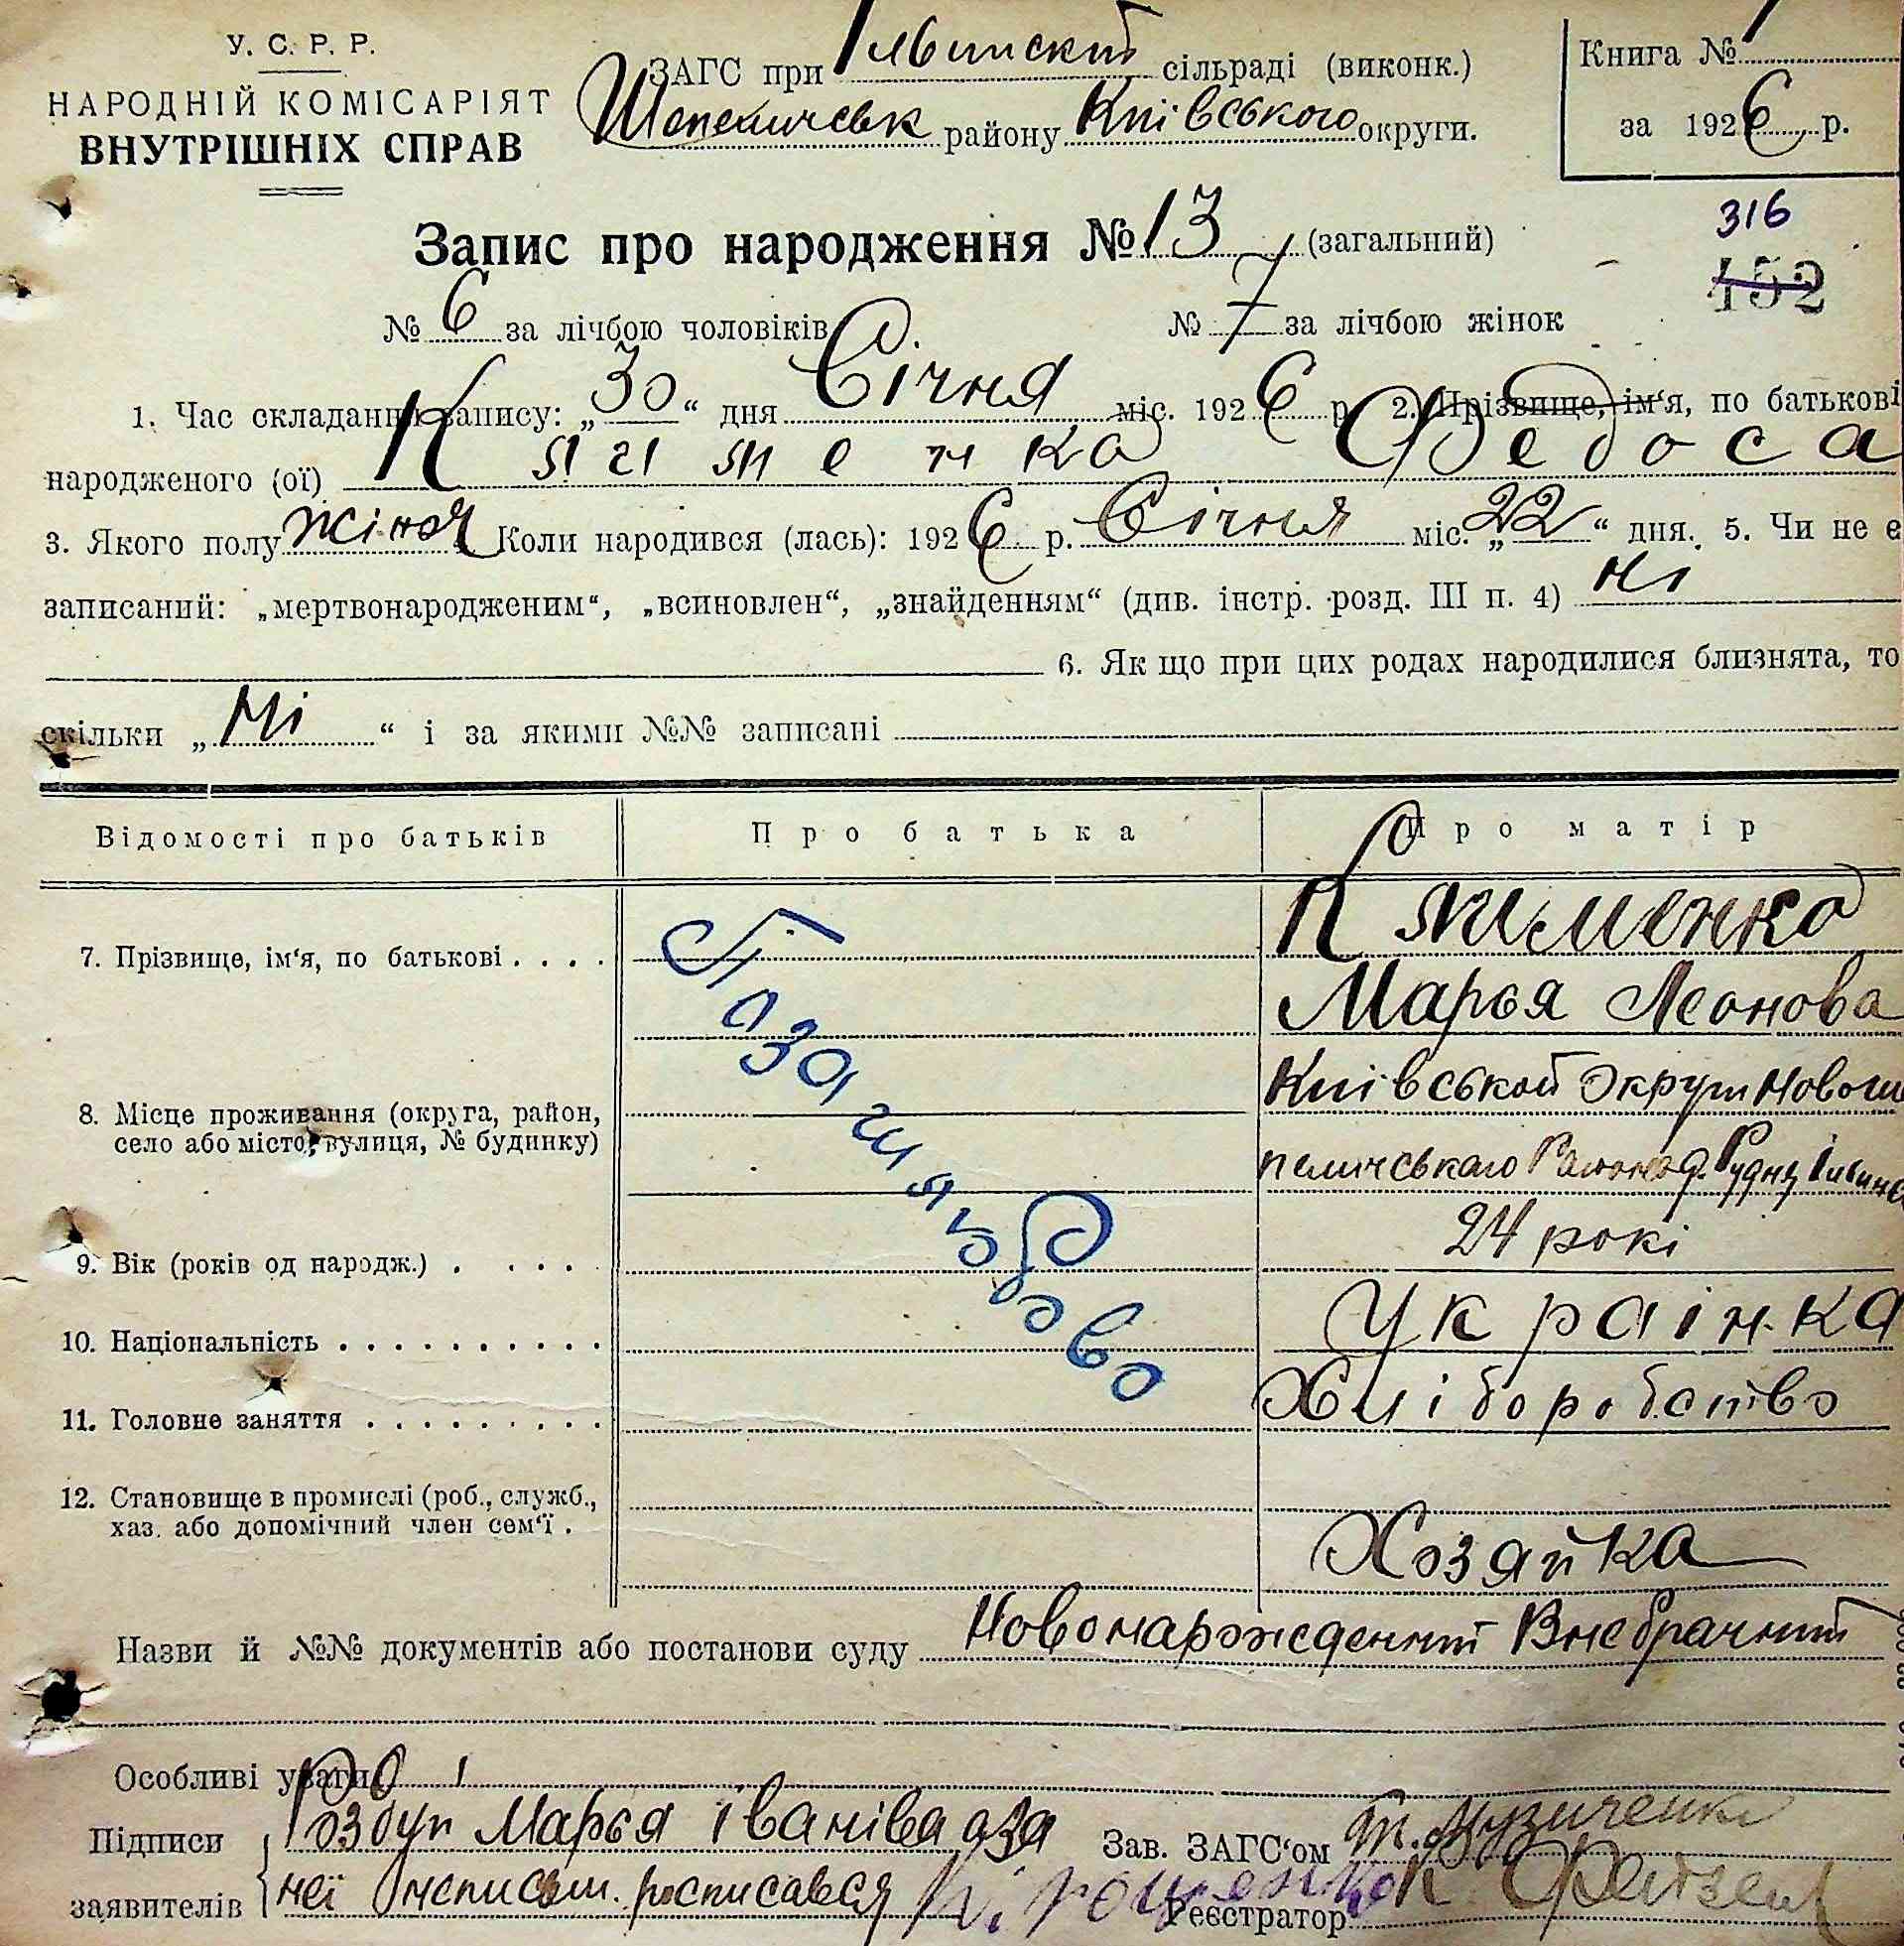 У. С. Р. Р.
НАРОДНІЙ КОМІСАРІЯТ
ВНУТРІШНІХ СПРАВ
ЗАГС при сільраді (виконк.)
району Київського округи.
Книга № 1
за 1926 р.
Запис про народження № 13 (загальний)
316
452
№ 6 за лічбою чоловіків № 7 за лічбою жінок
1. Час складання запису: „30“ дня Січня міс. 1926 р. 2. Прізвище, ім‘я, по батькові
народженого (ої) Клименко Федоса
3. Якого полу жіноч Коли народився (лась): 1926 р. Січня міс. „22“ дня. 5. Чи не є
записаний: „мертвонародженим“, „всиновлен“, „знайденням“ (див. інстр. розд. III п. 4) ні
6. Як що при цих родах народилися близнята, то
скільки „ Ні “ і за якими №№ записані
Відомості про батьків Про батька Про матір
7. Прізвище, ім‘я, по батькові . . . . Клименко
Марья Леонова
8. Місце проживання (округа, район,
село або місто, вулиця, № будинку)
Київськой Округи Новоше
пеличського Району д. Рудня
9. Вік (років од народж.) . . . . . 24 рокі
10. Національність . . . . . . . . . . Украінка
11. Головне заняття . . . . . . . . . Хліборобство
12. Становище в промислі (роб., служб.,
хаз. або допомічний член сем‘ї . Хозяйка
Назви й №№ документів або постанови суду Новонарожденний Внебрачний
Особливі уваги
Підписи Марья Іваніва аза Зав. ЗАГС‘ом
заявителів неї росписався
Реєстратор